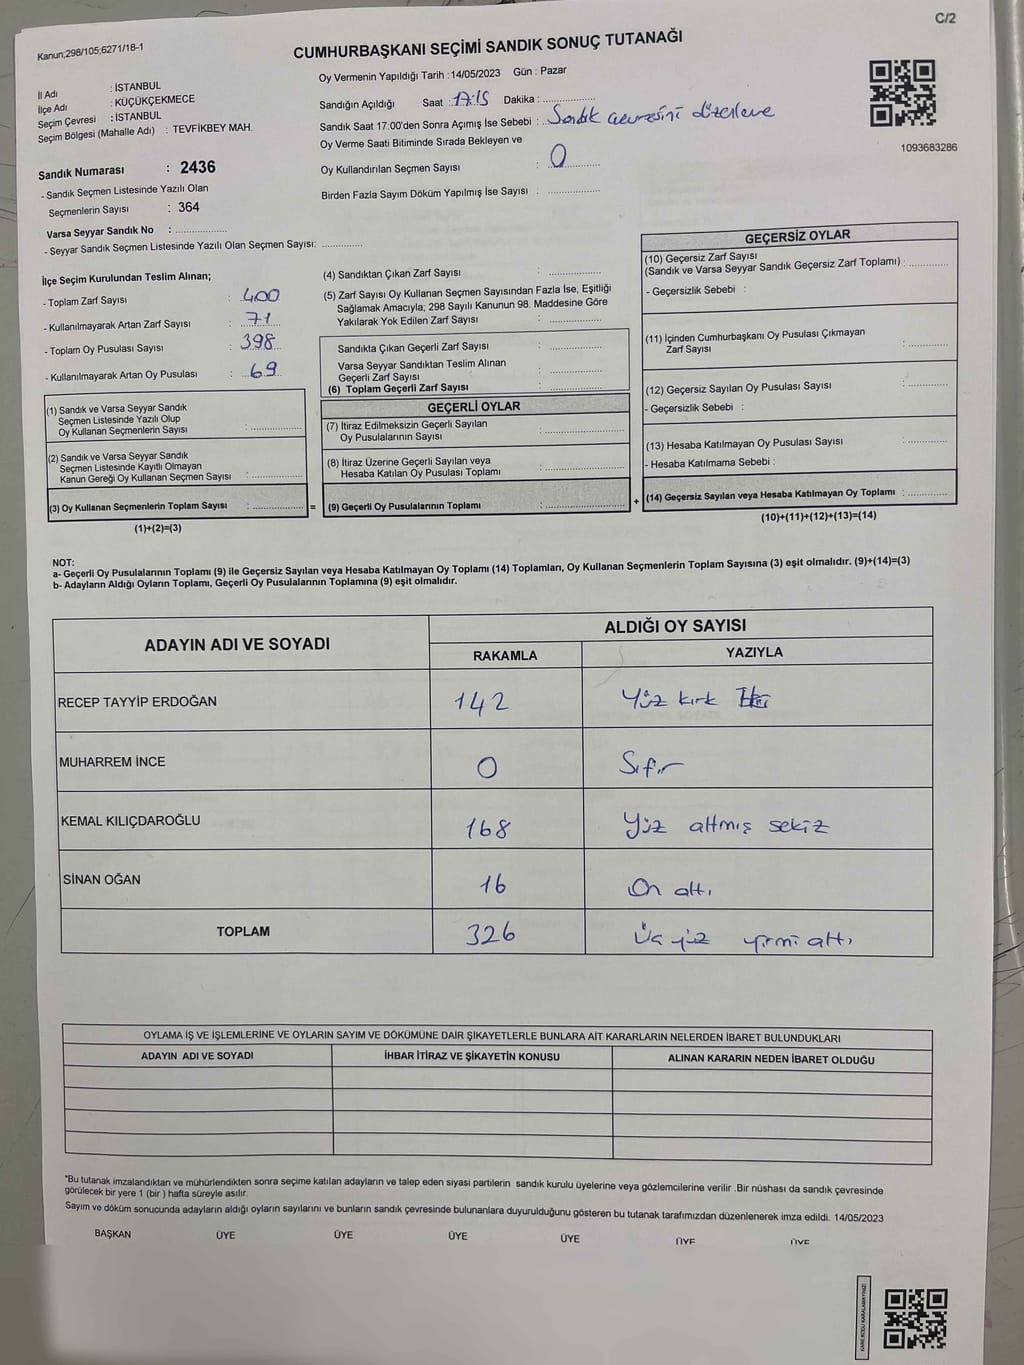 C/2
Kanun;298/105;6271/18-1
CUMHURBAŞKANI SEÇİMİ SANDIK SONUÇ TUTANAĞI
İl Adı : İSTANBUL
İlçe Adı : KÜÇÜKÇEKMECE
Seçim Çevresi : İSTANBUL
Seçim Bölgesi (Mahalle Adı) : TEVFİKBEY MAH.
Oy Vermenin Yapıldığı Tarih :14/05/2023 Gün : Pazar
Sandığın Açıldığı Saat : 17:15 Dakika : ..................
Sandık Saat 17:00'den Sonra Açımış İse Sebebi : Sandık çevresini düzenleme
Oy Verme Saati Bitiminde Sırada Bekleyen ve
Oy Kullandırılan Seçmen Sayısı : 0
Birden Fazla Sayım Döküm Yapılmış İse Sayısı : ..................
1093683286
Sandık Numarası : 2436
- Sandık Seçmen Listesinde Yazılı Olan
Seçmenlerin Sayısı : 364
Varsa Seyyar Sandık No : ..................
- Seyyar Sandık Seçmen Listesinde Yazılı Olan Seçmen Sayısı: ..............
İlçe Seçim Kurulundan Teslim Alınan;
- Toplam Zarf Sayısı : 400
- Kullanılmayarak Artan Zarf Sayısı : 71
- Toplam Oy Pusulası Sayısı : 398
- Kullanılmayarak Artan Oy Pusulası : 69
(1) Sandık ve Varsa Seyyar Sandık
Seçmen Listesinde Yazılı Olup
Oy Kullanan Seçmenlerin Sayısı : ..................
(2) Sandık ve Varsa Seyyar Sandık
Seçmen Listesinde Kayıtlı Olmayan
Kanun Gereği Oy Kullanan Seçmen Sayısı : ..................
(3) Oy Kullanan Seçmenlerin Toplam Sayısı : .................. =
(1)+(2)=(3)
(4) Sandıktan Çıkan Zarf Sayısı : ..................
(5) Zarf Sayısı Oy Kullanan Seçmen Sayısından Fazla İse, Eşitliği
Sağlamak Amacıyla; 298 Sayılı Kanunun 98. Maddesine Göre
Yakılarak Yok Edilen Zarf Sayısı : ..................
Sandıkta Çıkan Geçerli Zarf Sayısı : ..................
Varsa Seyyar Sandıktan Teslim Alınan
Geçerli Zarf Sayısı : ..................
(6) Toplam Geçerli Zarf Sayısı : ..................
GEÇERLİ OYLAR
(7) İtiraz Edilmeksizin Geçerli Sayılan
Oy Pusulalarının Sayısı : ..................
(8) İtiraz Üzerine Geçerli Sayılan veya
Hesaba Katılan Oy Pusulası Toplamı : ..................
(9) Geçerli Oy Pusulalarının Toplamı : .................. +
GEÇERSİZ OYLAR
(10) Geçersiz Zarf Sayısı
(Sandık ve Varsa Seyyar Sandık Geçersiz Zarf Toplamı) : ..............
- Geçersizlik Sebebi :
(11) İçinden Cumhurbaşkanı Oy Pusulası Çıkmayan
Zarf Sayısı : ..............
(12) Geçersiz Sayılan Oy Pusulası Sayısı : ..............
- Geçersizlik Sebebi :
(13) Hesaba Katılmayan Oy Pusulası Sayısı : ..............
- Hesaba Katılmama Sebebi :
(14) Geçersiz Sayılan veya Hesaba Katılmayan Oy Toplamı : ..............
(10)+(11)+(12)+(13)=(14)
NOT:
a- Geçerli Oy Pusulalarının Toplamı (9) ile Geçersiz Sayılan veya Hesaba Katılmayan Oy Toplamı (14) Toplamları, Oy Kullanan Seçmenlerin Toplam Sayısına (3) eşit olmalıdır. (9)+(14)=(3)
b- Adayların Aldığı Oyların Toplamı, Geçerli Oy Pusulalarının Toplamına (9) eşit olmalıdır.
ADAYIN ADI VE SOYADI ALDIĞI OY SAYISI
RAKAMLA YAZIYLA
RECEP TAYYİP ERDOĞAN 142 Yüz kırk iki
MUHARREM İNCE 0 Sıfır
KEMAL KILIÇDAROĞLU 168 Yüz altmış sekiz
SİNAN OĞAN 16 On altı
TOPLAM 326 Üç yüz yirmi altı
OYLAMA İŞ VE İŞLEMLERİNE VE OYLARIN SAYIM VE DÖKÜMÜNE DAİR ŞİKAYETLERLE BUNLARA AİT KARARLARIN NELERDEN İBARET BULUNDUKLARI
ADAYIN ADI VE SOYADI İHBAR İTİRAZ VE ŞİKAYETİN KONUSU ALINAN KARARIN NEDEN İBARET OLDUĞU
*Bu tutanak imzalandıktan ve mühürlendikten sonra seçime katılan adayların ve talep eden siyasi partilerin sandık kurulu üyelerine veya gözlemcilerine verilir .Bir nüshası da sandık çevresinde
görülecek bir yere 1 (bir ) hafta süreyle asılır.
Sayım ve döküm sonucunda adayların aldığı oyların sayılarını ve bunların sandık çevresinde bulunanlara duyurulduğunu gösteren bu tutanak tarafımızdan düzenlenerek imza edildi. 14/05/2023
BAŞKAN ÜYE ÜYE ÜYE ÜYE ÜYE ÜYE
KARE KODU KARALAMAYINIZ!